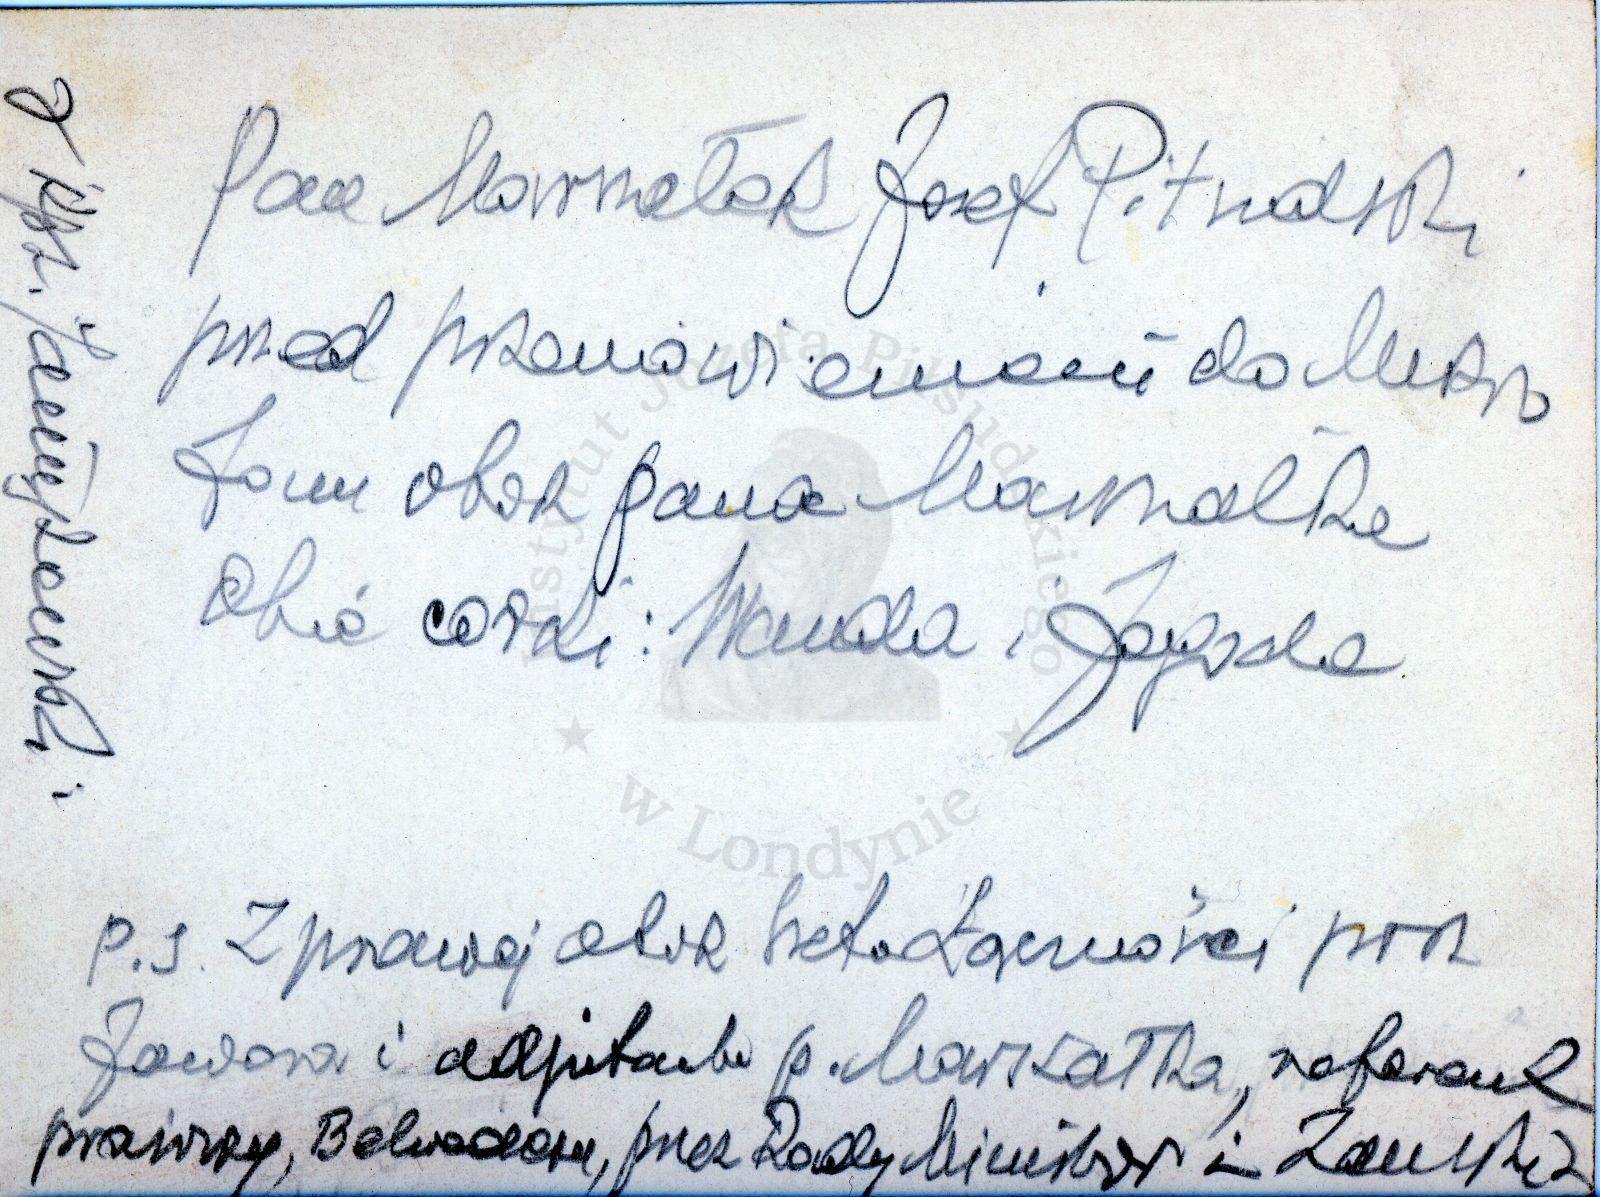 Pan Marszałek Józef Piłsudski
przed przemówieniem do Mikro
fonu obok Pana Marszałka
Obie córki: Wanda i Jagoda
p.s. Z prawej obok szef łączności por
Jawora i adjutant p. Marszałka, referent
prawny, Belwederu, prez Rady Ministrów i Zamku
Instytut Józefa Piłsudskiego
w Londynie